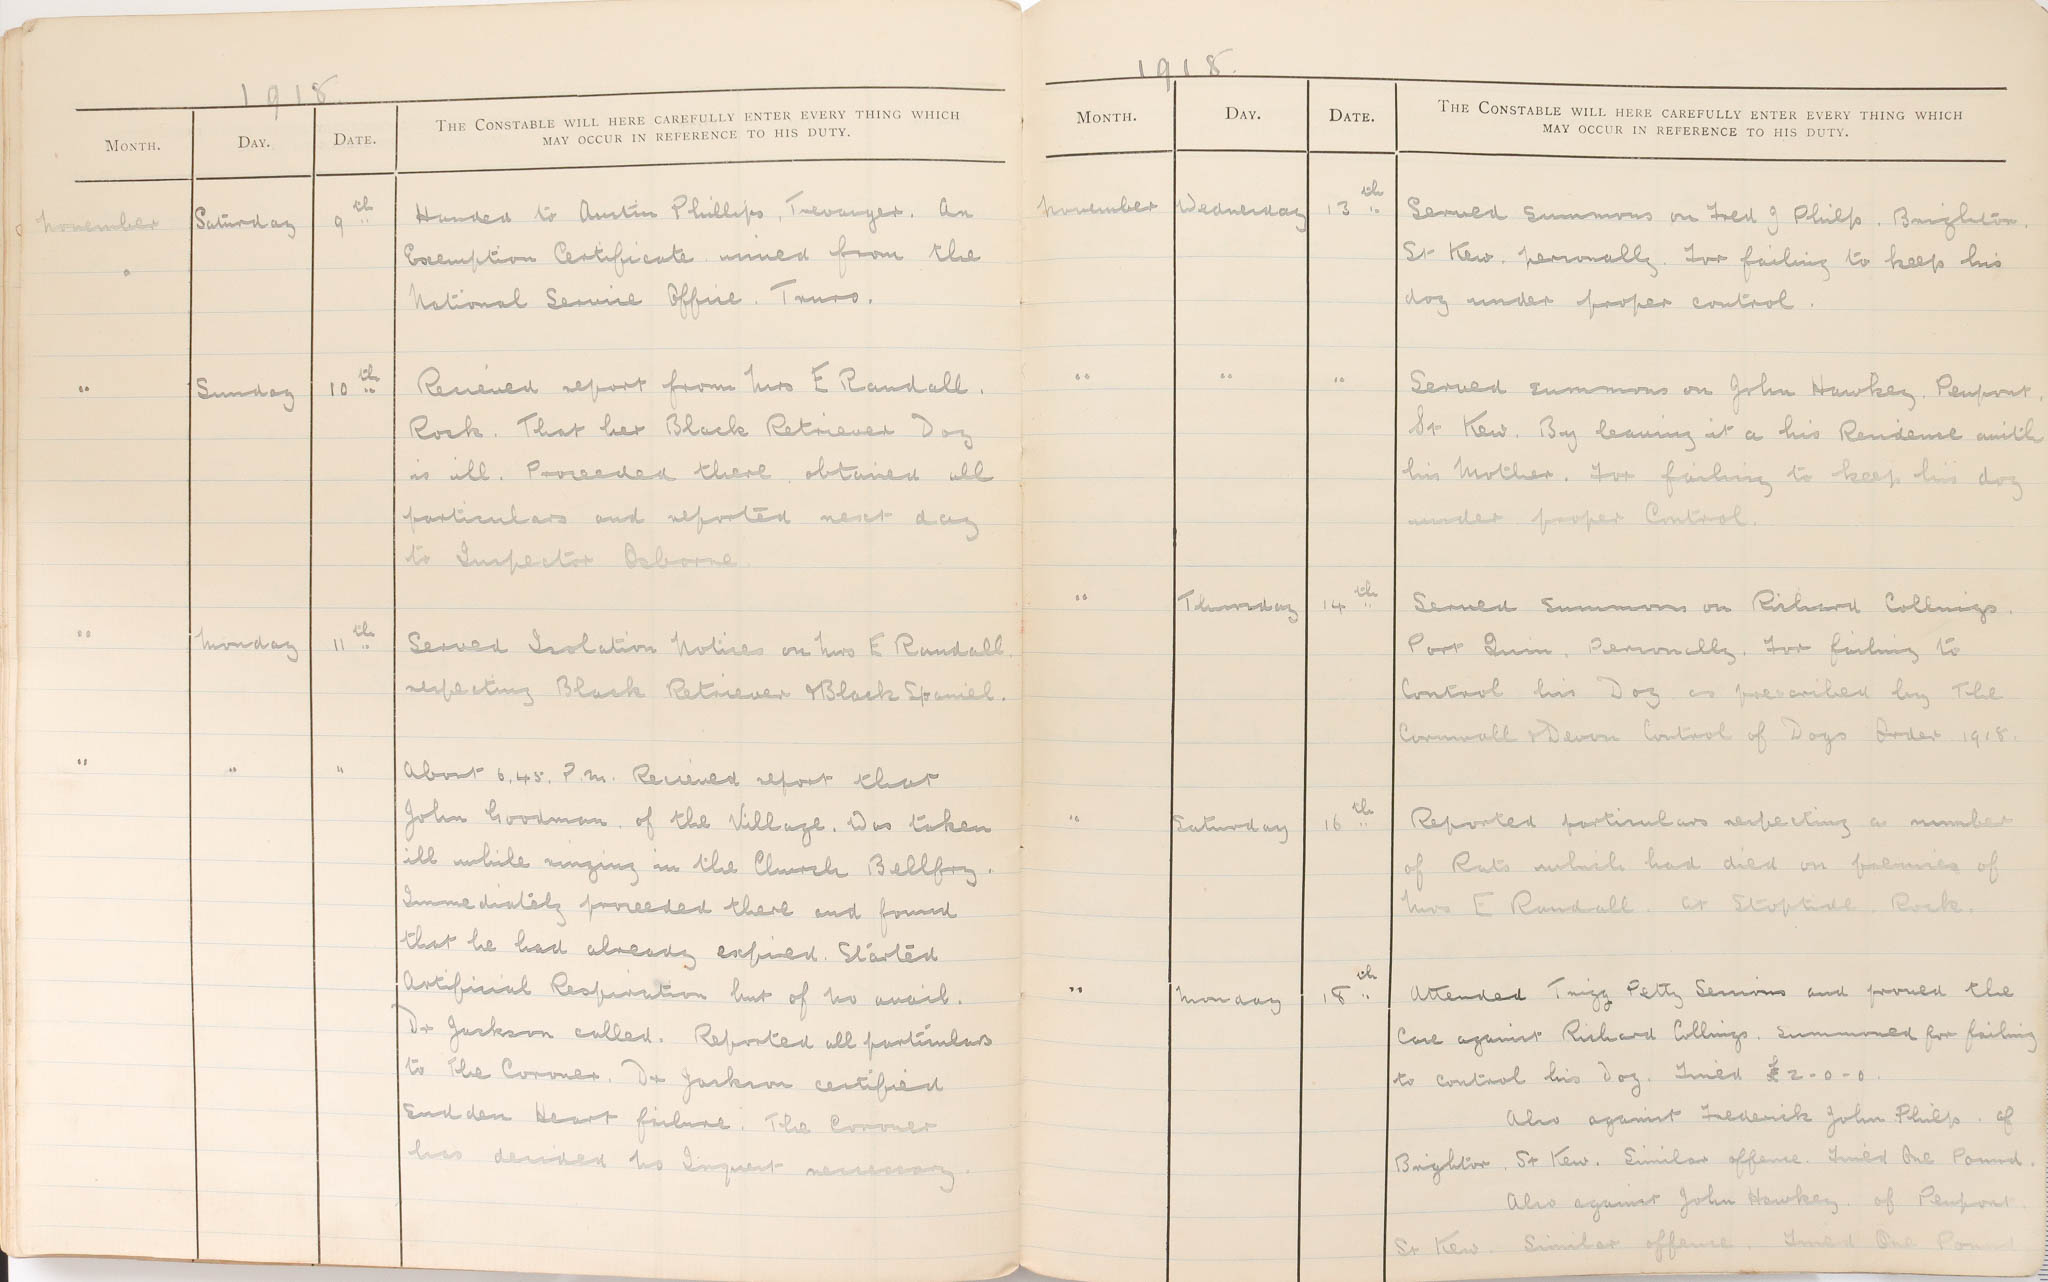 1918.
MONTH. DAY. DATE. THE CONSTABLE WILL HERE CAREFULLY ENTER EVERY THING WHICH
MAY OCCUR IN REFERENCE TO HIS DUTY.
November Saturday 9th Handed to Austin Phillips, Trevanger. An
" Exemption Certificate. issued from the
National Service Office. Truro.
" Sunday 10th Recieved report from Mrs E Randall.
Rock. That her Black Retriever Dog
is ill. Proceeded there obtained all
particulars and reported next day
to Inspector Osborne.
" Monday 11th Served Isolation Notices on Mrs E Randall.
respecting Black Retriever & Black Spaniel.
" " " About 6.45. P.m. Recieved report that
John Goodman. of the Village. Was taken
ill while ringing in the Church Bellfry.
Immediately proceeded there and found
that he had already expired. Started
Artificial Respiration but of no avail.
Dr Jackson called. Reported all particulars
to The Coroner. Dr Jackson certified
Sudden Heart failure. The Coroner
has decided no Inquest necessary.
1918.
MONTH. DAY. DATE. THE CONSTABLE WILL HERE CAREFULLY ENTER EVERY THING WHICH
MAY OCCUR IN REFERENCE TO HIS DUTY.
November Wednesday 13th Served summons on Fred J Philp. Brighton.
St Kew. personally. For failing to keep his
dog under proper control.
" " " Served summons on John Hawkey. Penpont.
St Kew. By leaving it a his Residence with
his Mother. For failing to keep his dog
under proper Control.
" Thursday 14th Served summons on Richard Collings.
Port Quin. Personally. For failing to
Control his Dog as prescribed by The
Cornwall & Devon Control of Dogs Order 1918.
" Saturday 16th Reported particulars respecting a number
of Rats which had died on premises of
Mrs E Randall. at Stoptide. Rock.
" Monday 18th Attended Trigg Petty Sessions and proved the
Case against Richard Collings. summoned for failing
to control his Dog. Fined £2-0-0.
Also against Frederick John Philp. of
Brighton. St Kew. Similar offence. Fined One Pound.
Also against John Hawkey. of Penpont.
St Kew. Similar offence. Fined One Pound